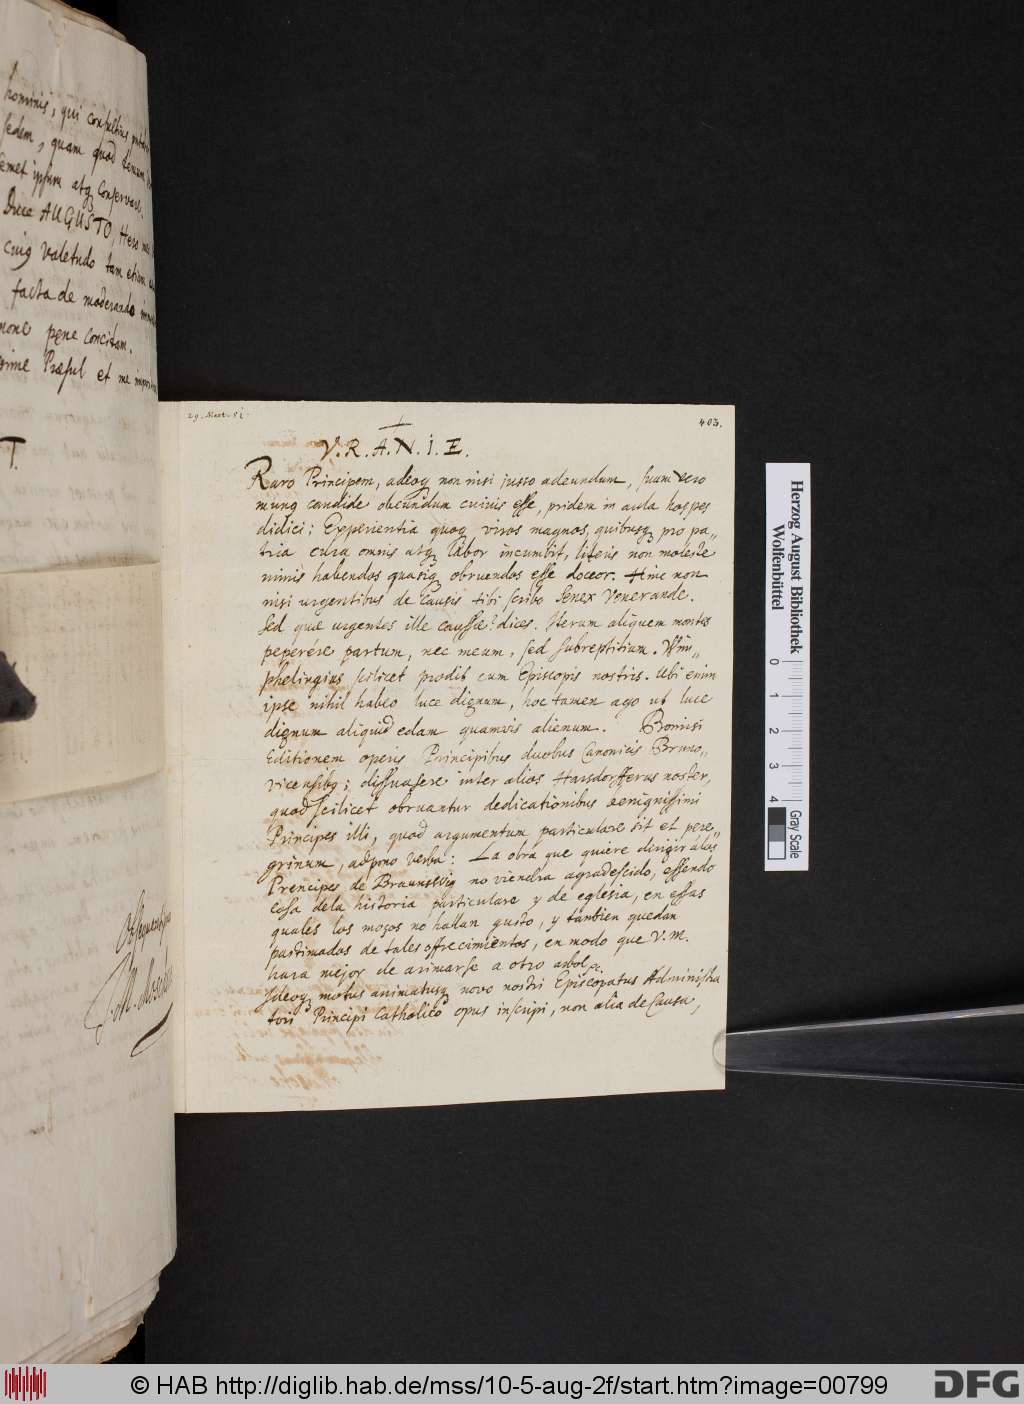 hominis, qui consultius
sedem, quam quod
semet ipsum atq conservare.
Duce AUGUSTO, Hero
cuiq valetudo tam etiam
facta de moderando
pene concitam.
Præsul et me
T.
29. Mart. 51.
403.
V.R.A.N.I.E.
Raro Principem, adeoq non nisi jusso adeundum, suum vero
munq candide obeundum cuivis esse, pridem in aula hospes
didici: Experientia quoq viros magnos, quibusq pro pa„
tria cura omnis atq labor incumbit, literis non moleste
nimis habendos quasiq obruendos esse doceor. Hinc non
nisi urgentibus de causis tibi scribo Senex Venerande.
Sed quæ urgentes ille caussæ? dices. Iterum aliquem montes
peperere partum, nec meum, sed subreptitium. Wim„
phelingius scilicet prodit cum Episcopis nostris. Ubi enim
ipse nihil habeo luce dignum, hoc tamen ago ut luce
dignum aliquid edam quamvis alienum. Promisi
Editionem operis Principibus duobus Canonicis Bruno„
vicensibq; dissuasere inter alios Harsdorfferus noster,
quod scilicet obruantur dedicationibus benignissimi
Principes illi, quod argumentum particulare sit et pere„
grinum, adpono verba: La obra que quiere dirigir a los
Prencipes de Braunswig no viendra agradescido, essendo
cosa dela historia particulare y de eglesia, en essas
quales los moços no hallan gusto, y tambien quedan
pastimados de tales offrecimientos, en modo que V.M.
hara mejor de arimarse a otro arbol &c.
Ideoq motus animatusq novo nostri Episcopatus Administra
tori Principi Catholico opus inscripi, non alia de causa,
Herzog August Bibliothek
Wolfenbüttel
0 1 2 3 4
Gray Scale
© HAB http://diglib.hab.de/mss/10-5-aug-2f/start.htm?image=00799
DFG